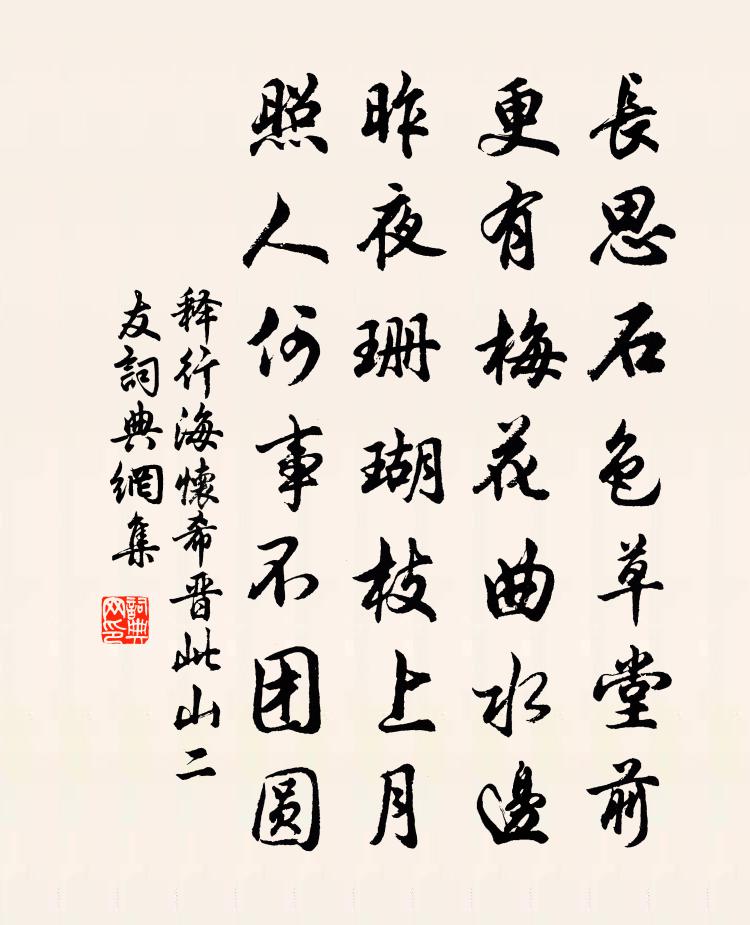 長思石色草堂前
更有梅花曲水邊
昨夜珊瑚枝上月
照人何事不团圆
释行海懷希晋此山二
友詞典網集
詞典
网印